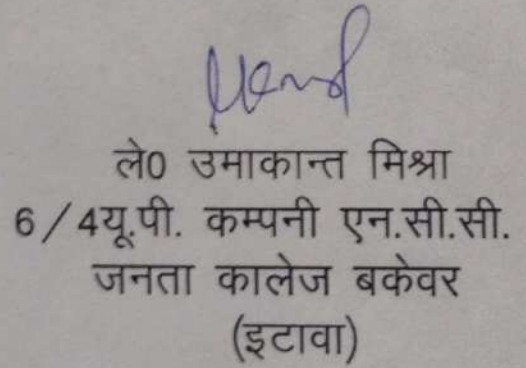 ले0 उमाकान्त मिश्रा
6/4यू.पी. कम्पनी एन.सी.सी.
जनता कालेज बकेवर
(इटावा)